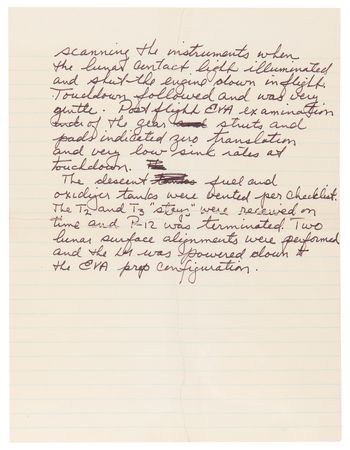 scanning the instruments when
the lunar contact light illuminated
and shut the engine down in flight.
Touchdown followed and was very
gentle. Post flight EVA examination
of the gear struts and
pads indicated zero translation
and very low sink rates at
touchdown.
The descent fuel and
oxidizer tanks were vented per checklist.
The T2 and T3 "stays" were received on
time and P-12 was terminated. Two
lunar surface alignments were performed
and the LM was powered down to
the EVA prep configuration.